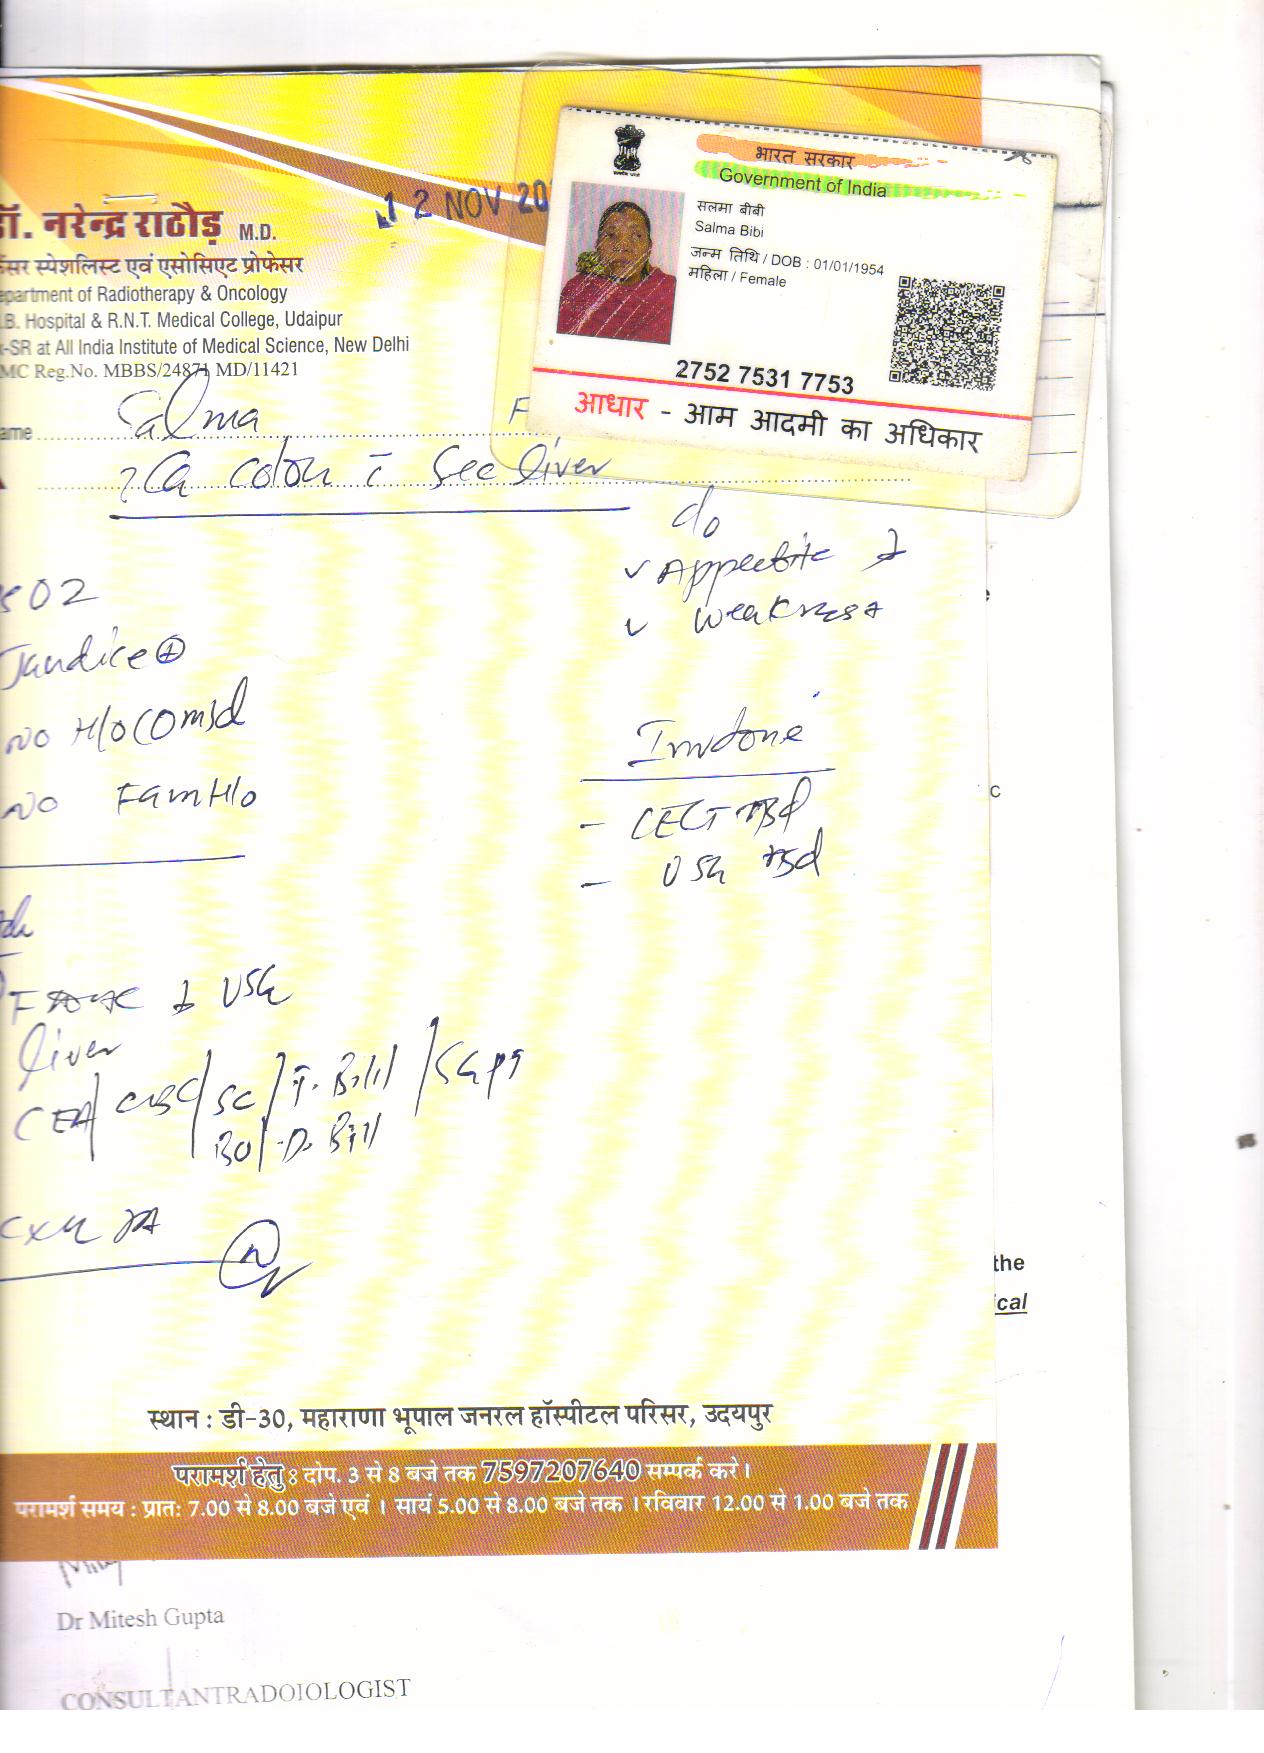 डॉ. नरेन्द्र राठौड़ M.D.
1 2 NOV 20
कैंसर स्पेशलिस्ट एवं एसोसिएट प्रोफेसर
epartment of Radiotherapy & Oncology
.B. Hospital & R.N.T. Medical College, Udaipur
-SR at All India Institute of Medical Science, New Delhi
MC Reg.No. MBBS/24871 MD/11421
भारत सरकार
Government of India
सलमा बीबी
Salma Bibi
जन्म तिथि / DOB : 01/01/1954
महिला / Female
2752 7531 7753
आधार - आम आदमी का अधिकार
ame Salma F
? Ca colon c̄ sec liver
c/o
Appetite ↓
Weakness +
02
Jaundice ⊕
NO H/O
NO Fam H/o
Inv done
- CECT
- USG
USG
liver
CEA / CBC / SC / T. Bill / SGPT
D. Bill
CXR PA
the
ical
स्थान : डी-30, महाराणा भूपाल जनरल हॉस्पीटल परिसर, उदयपुर
परामर्श हेतु : दोप. 3 से 8 बजे तक 7597207640 सम्पर्क करे ।
परामर्श समय : प्रातः 7.00 से 8.00 बजे एवं । सायं 5.00 से 8.00 बजे तक । रविवार 12.00 से 1.00 बजे तक
Dr Mitesh Gupta
CONSULTANTRADOIOLOGIST